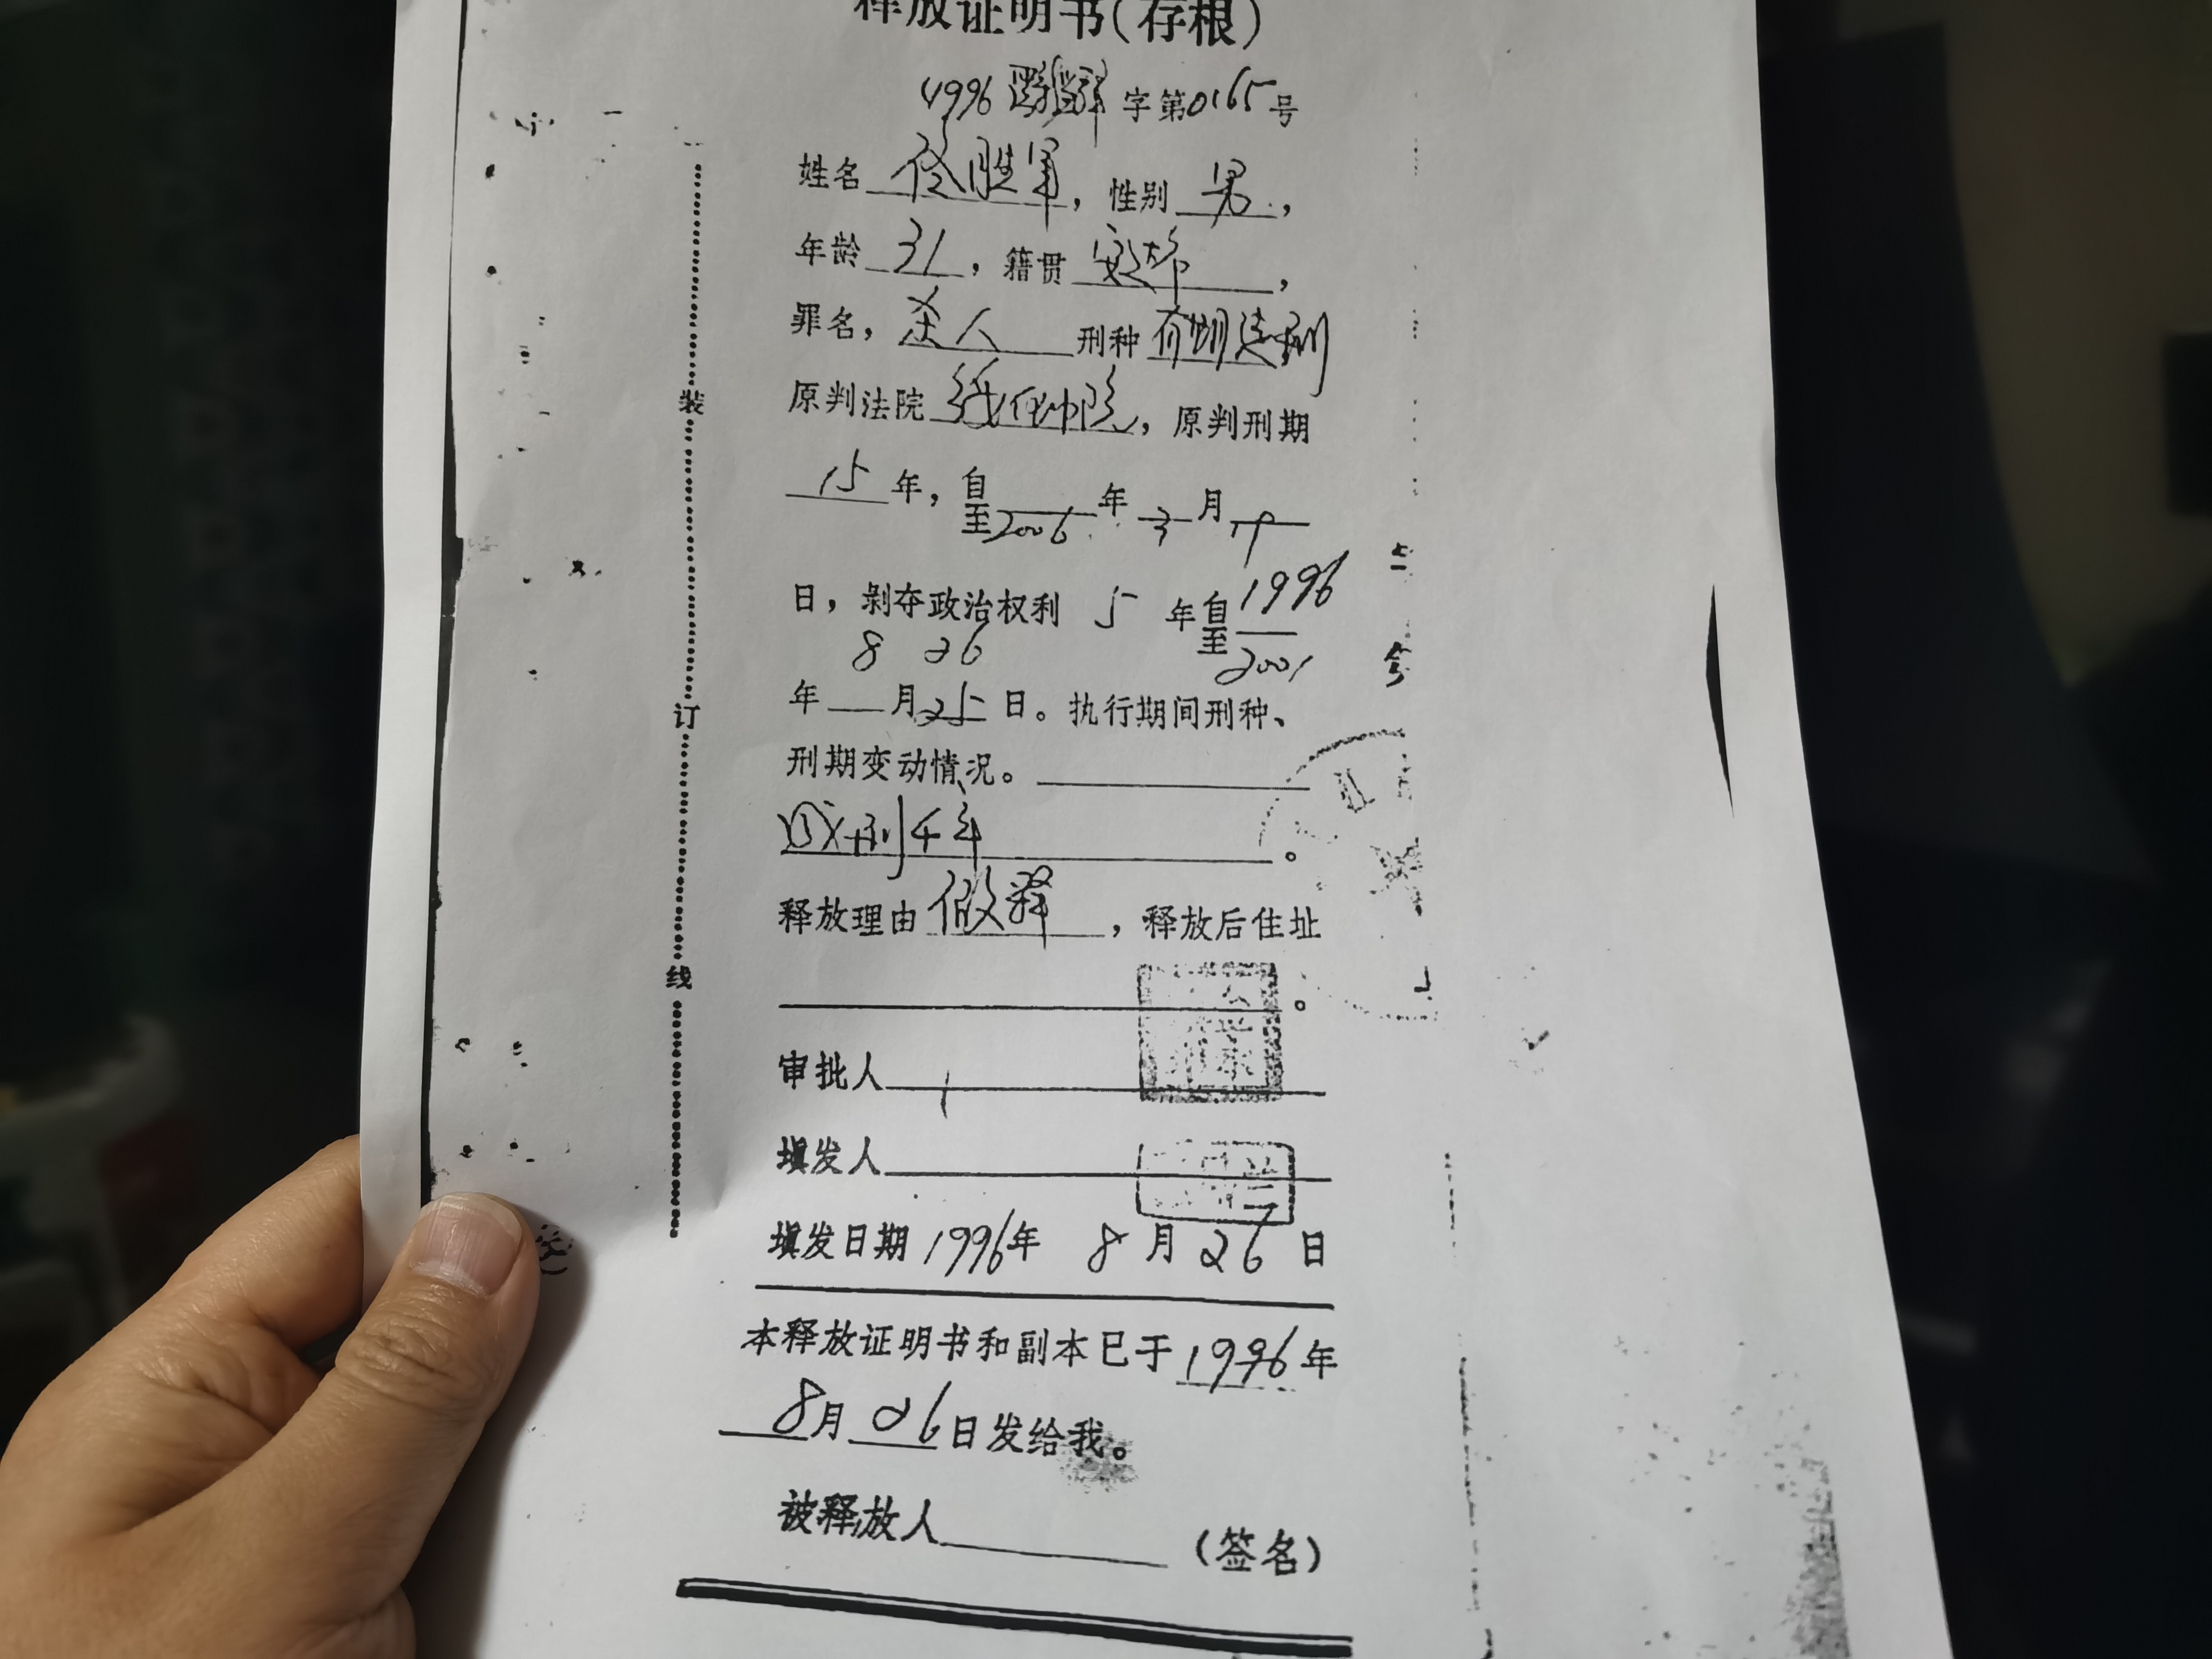 释放证明书(存根)
1996 字第0165号
姓名 胜军，性别 男，
年龄 31，籍贯 安达市，
罪名，杀人 刑种 有期徒刑
原判法院 中院，原判刑期
15 年，自 年 月
至2006 3 19
日，剥夺政治权利 5 年自1996
至2001
8 26
年 月25日。执行期间刑种、
刑期变动情况。
减刑4年。
释放理由 假释，释放后住址
。
审批人
填发人
填发日期 1996年 8月26日
本释放证明书和副本已于1996年
8月26日发给我。
被释放人 (签名)
装
订
线